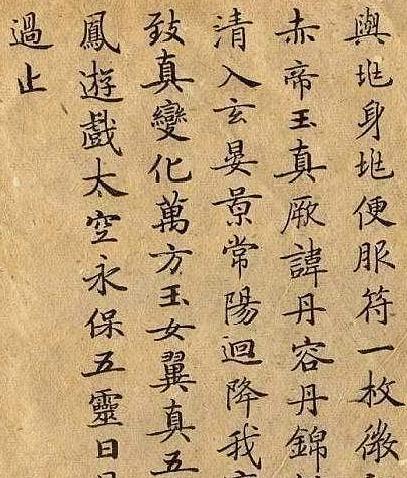 與地身地便服符一枚微
赤帝玉真厥諱丹容丹錦
清入玄晏景常陽迴降我
致真變化萬方玉女翼真五
鳳遊戲太空永保五靈日
過止